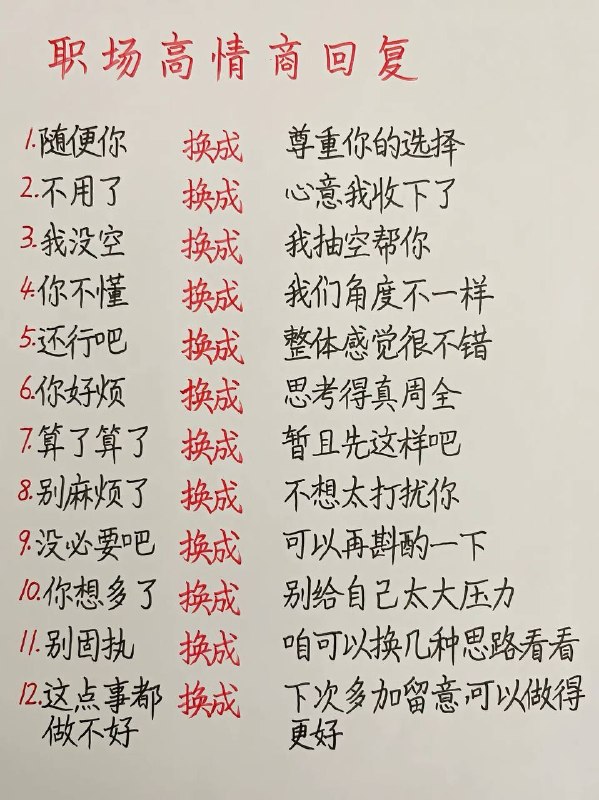 职场高情商回复
1.随便你 换成 尊重你的选择
2.不用了 换成 心意我收下了
3.我没空 换成 我抽空帮你
4.你不懂 换成 我们角度不一样
5.还行吧 换成 整体感觉很不错
6.你好烦 换成 思考得真周全
7.算了算了 换成 暂且先这样吧
8.别麻烦了 换成 不想太打扰你
9.没必要吧 换成 可以再斟酌一下
10.你想多了 换成 别给自己太大压力
11.别固执 换成 咱可以换几种思路看看
12.这点事都 换成 下次多加留意,可以做得
做不好 更好